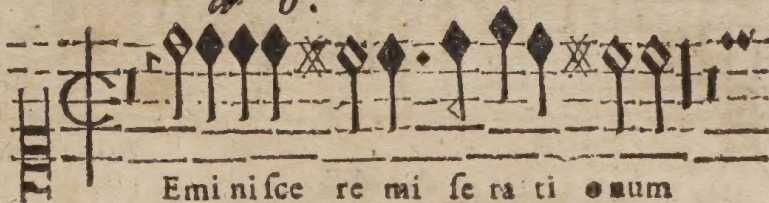 a 6.
Eminisce re mi se ra ti onum